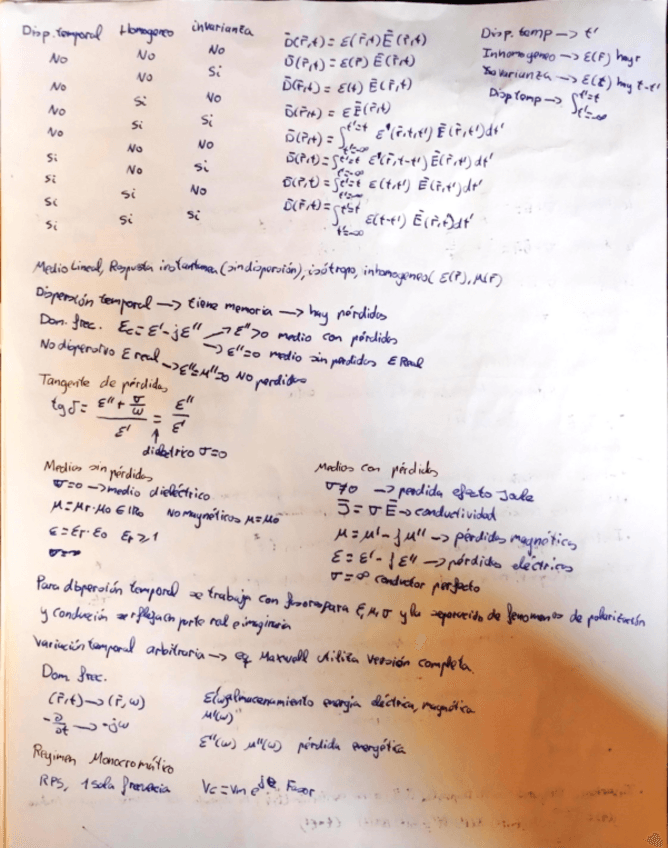 Disp. temporal Homogeneo invarianza
No No No D̄(r̄,t) = ε(r̄,t) Ē(r̄,t)
No No Si D̄(r̄,t) = ε(r̄) Ē(r̄,t)
No Si No D̄(r̄,t) = ε(t) Ē(r̄,t)
No Si Si D̄(r̄,t) = ε Ē(r̄,t)
Si No No D̄(r̄,t) = ∫_{t'=-∞}^{t'=t} ε(r̄,t,t') Ē(r̄,t') dt'
Si No Si D̄(r̄,t) = ∫_{t'=-∞}^{t'=t} ε(r̄,t-t') Ē(r̄,t') dt'
Si Si No D̄(r̄,t) = ∫_{t'=-∞}^{t'=t} ε(t,t') Ē(r̄,t') dt'
Si Si Si D̄(r̄,t) = ∫_{t'=-∞}^{t'=t} ε(t-t') Ē(r̄,t') dt'
Disp. temp → t'
Inhomogeneo → ε(r̄) hay r
→ ε(t) hay t-t'
Disp temp → ∫_{t'=-∞}^{t'=t}
Medio Lineal, Respuesta instantanea (sin dispersión), isótropo, inhomogeneo (ε(r̄), μ(r̄)
Dispersión temporal → tiene memoria → hay pérdidas
Dom. frec. εc = ε' - jε'' → ε''>0 medio con pérdidas
→ ε''=0 medio sin perdidas ε Real
No dispersivo ε real → ε''=μ''=0 No perdidas
Tangente de pérdidas
tg δ = (ε'' + σ/ω) / ε' = ε''/ε'
↑
dieléctrico σ=0
Medios sin pérdidas
σ=0 → medio dieléctrico
μ = μr·μ0 ∈ ℝ No magnéticos μ=μ0
ε = εr·ε0 εr ≥ 1
Medios con pérdidas
σ≠0 → perdida efecto Joule
J̄ = σ Ē → conductividad
μ = μ' - jμ'' → pérdidas magnéticas
ε = ε' - jε'' → pérdidas eléctricas
σ = ∞ conductor perfecto
Para dispersión temporal se trabaja con fasores para ε, μ, σ y la separación de fenomenos de polarización
y conducción se refleja en parte real e imaginaria
Variación temporal arbitraria → eq Maxwell utiliza versión completa.
Dom. frec.
(r̄,t) → (r̄,ω)
-∂/∂t → -jω
ε'(ω) almacenamiento energía eléctrica, magnética
μ'(ω)
ε''(ω) μ''(ω) pérdida energética
Regimen Monocromático
RPS, 1 sola frecuencia Vc = Vm e^{jφ} Fasor